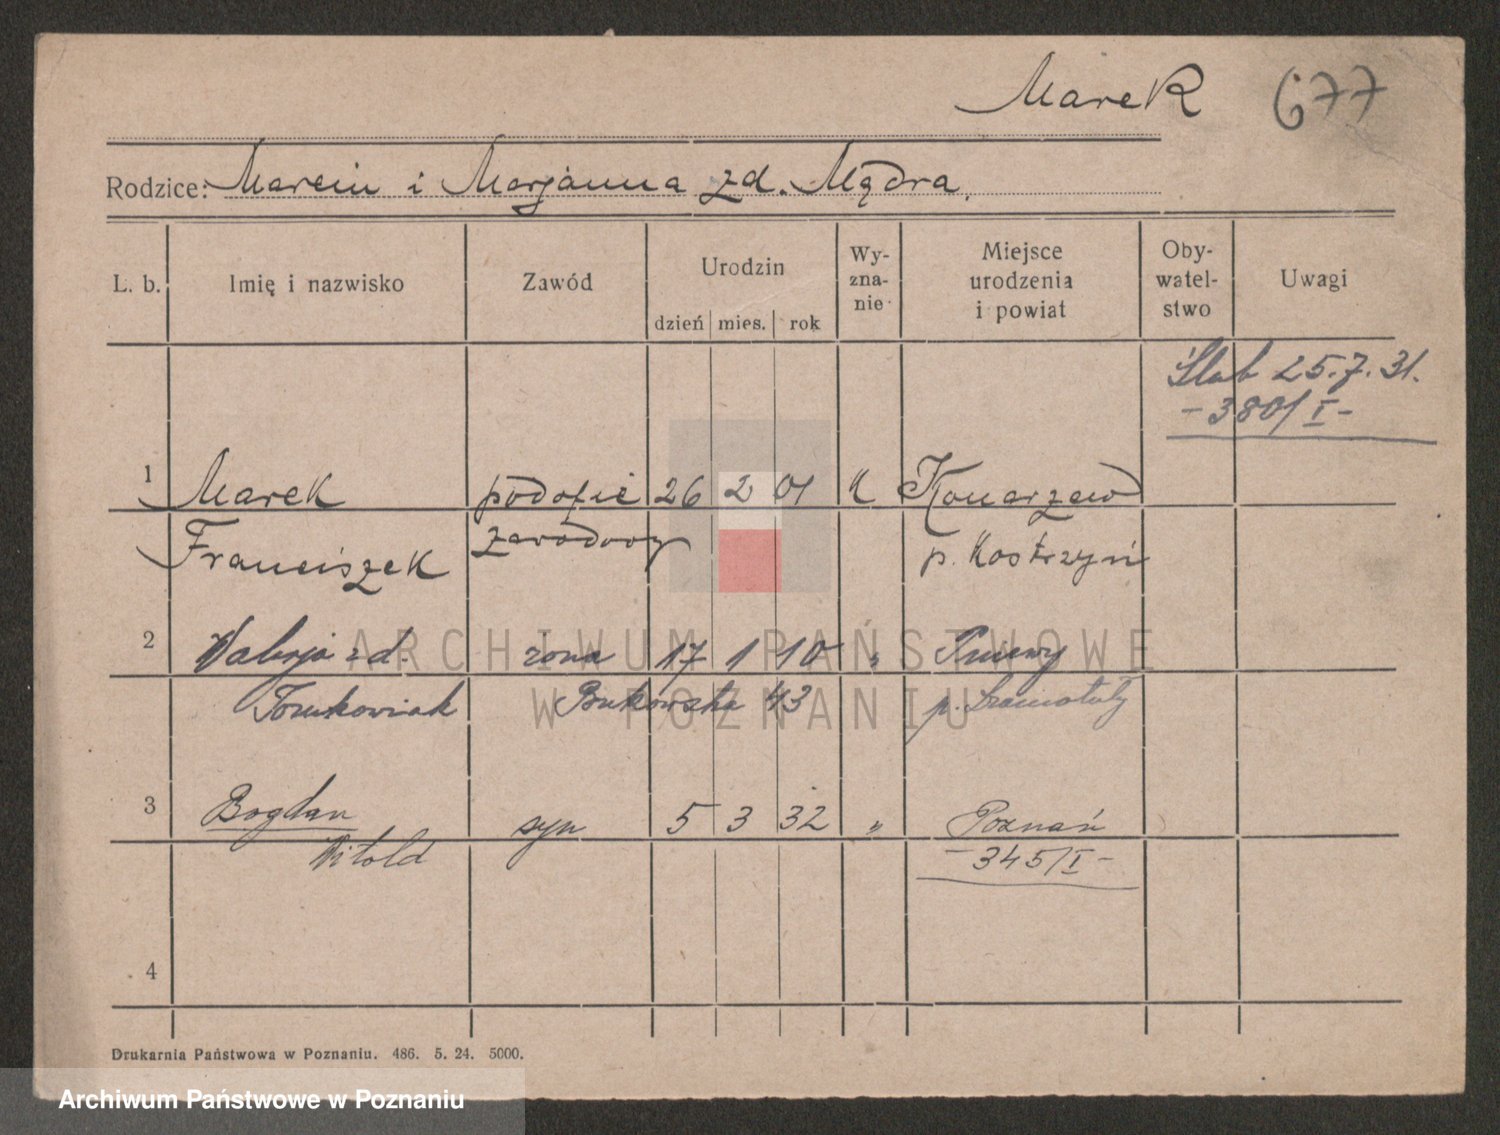 Marek 677
Rodzice: Marcin i Marjanna zd. Mądra.
L. b. Imię i nazwisko Zawód Urodzin dzień mies. rok Wy-zna-nie Miejsce urodzenia i powiat Oby-watel-stwo Uwagi
Ślub 25.7.31.
-380/I-
1 Marek podofic 26 2 01 K Konarzewo
Franciszek zawodowy p. Kostrzyń
2 Walerja zd. żona 17 1 10 " Pniewy
Tomkowiak Bukowska 43 p. Szamotuły
3 Bogdan syn 5 3 32 " Poznań
Witold -345/I-
4
Drukarnia Państwowa w Poznaniu. 486. 5. 24. 5000.
ARCHIWUM PAŃSTWOWE
W POZNANIU
Archiwum Państwowe w Poznaniu